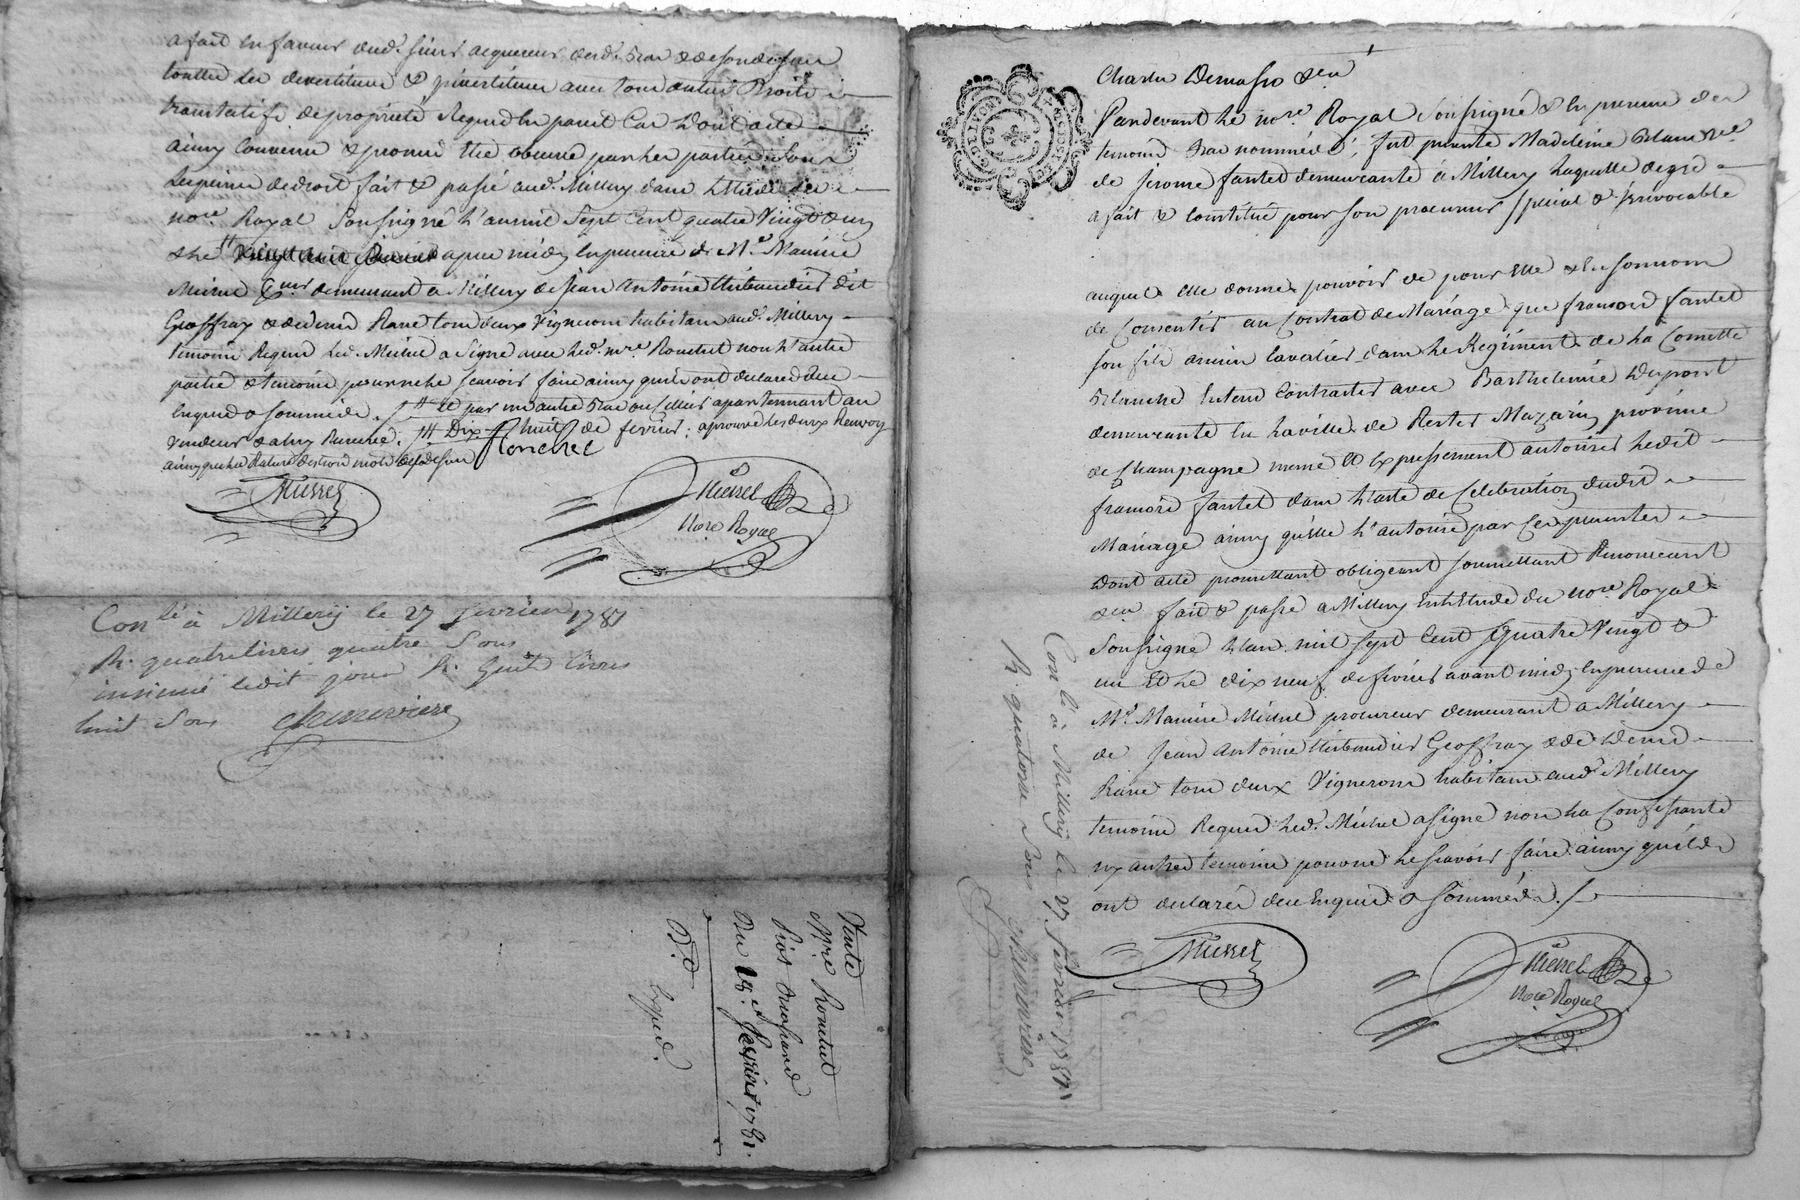 a fait en faveur dud. sieur acquereur de
touttes les devestitures & investitures avec tous autres Droits
translatifs de propriété Requis en pareil Cas Dont acte
ainsy Convenu & promis etre observé par les parties sous
les peines de droit fait & passé aud. Millery dans l'étude du
nore. Royal soussigné l'an mil sept cent quatre vingt & un
& le apres midy en presence de Me. Maurice
Michel demeurant a Millery de Jean Antoine Thibaudier dit
Geoffray & de Denis Rave tous deux vignerons habitans aud. Millery
temoins Requis led. Michel a signé avec led. mre. Ronchet non l'autre
partie & temoins pour ne le scavoir faire ainsy qu'ils ont declaré de ce
enquis & sommés. / # & par un autre ou cellier apartennant au
vendeur # Dix huit de fevrier. aprouvé les deux Renvoy
ainsy que la Rature de trois mots
Ronchet
Michel
Michel
Nore Royal
Conlé à Millery le 27 fevrier 1781
R. quatre livres quatre sous
insinué ledit jour R. huit livres
huit sous chenevriere
Vente
Mre. Ronchet
Du 18. fevrier 1781.
Exped.
DE LYON
Pardevant le nore. Royal soussigné & en presence des
temoins bas nommés, fut presente Madeleine Blanc ve.
de Jerome fantet demeurante à Millery laquelle de gré
a fait & constitué pour son procureur special & irrevocable
auquel elle donne pouvoir de pour elle & en son nom
de consentir au Contrat de Mariage que francois fantet
son fils ancien cavalier dans le Regiment de la Cornette
Blanche entend contracter avec Barthelemie Dupont
demeurante en la ville de Retel Mazarin province
de Champagne meme & expressement autoriser ledit
francois fantet dans l'acte de Celebration dudit
Mariage ainsy qu'elle l'autorise par ces presentes
Dont acte promettant obligeant soumettant Renoncant
&ca. fait & passé a Millery en l'Etude du nore Royal
soussigné l'an mil sept cent quatre vingt &
un & le dix neuf de fevrier avant midy en presence de
Me. Maurice Michel procureur demeurant a Millery
de Jean Antoine Thibaudier Geoffray & de Denis
Rave tous deux Vignerons habitans aud. Millery
temoins Requis led. Michel a signé non la Confessante
ny autres temoins pour ne le scavoir faire ainsy qu'ils
ont declaré de ce enquis & sommés. /
Michel
Michel
Nore Royal
Conlé à Millery le 27 fevrier 1781
R. quatorze sous chenevriere